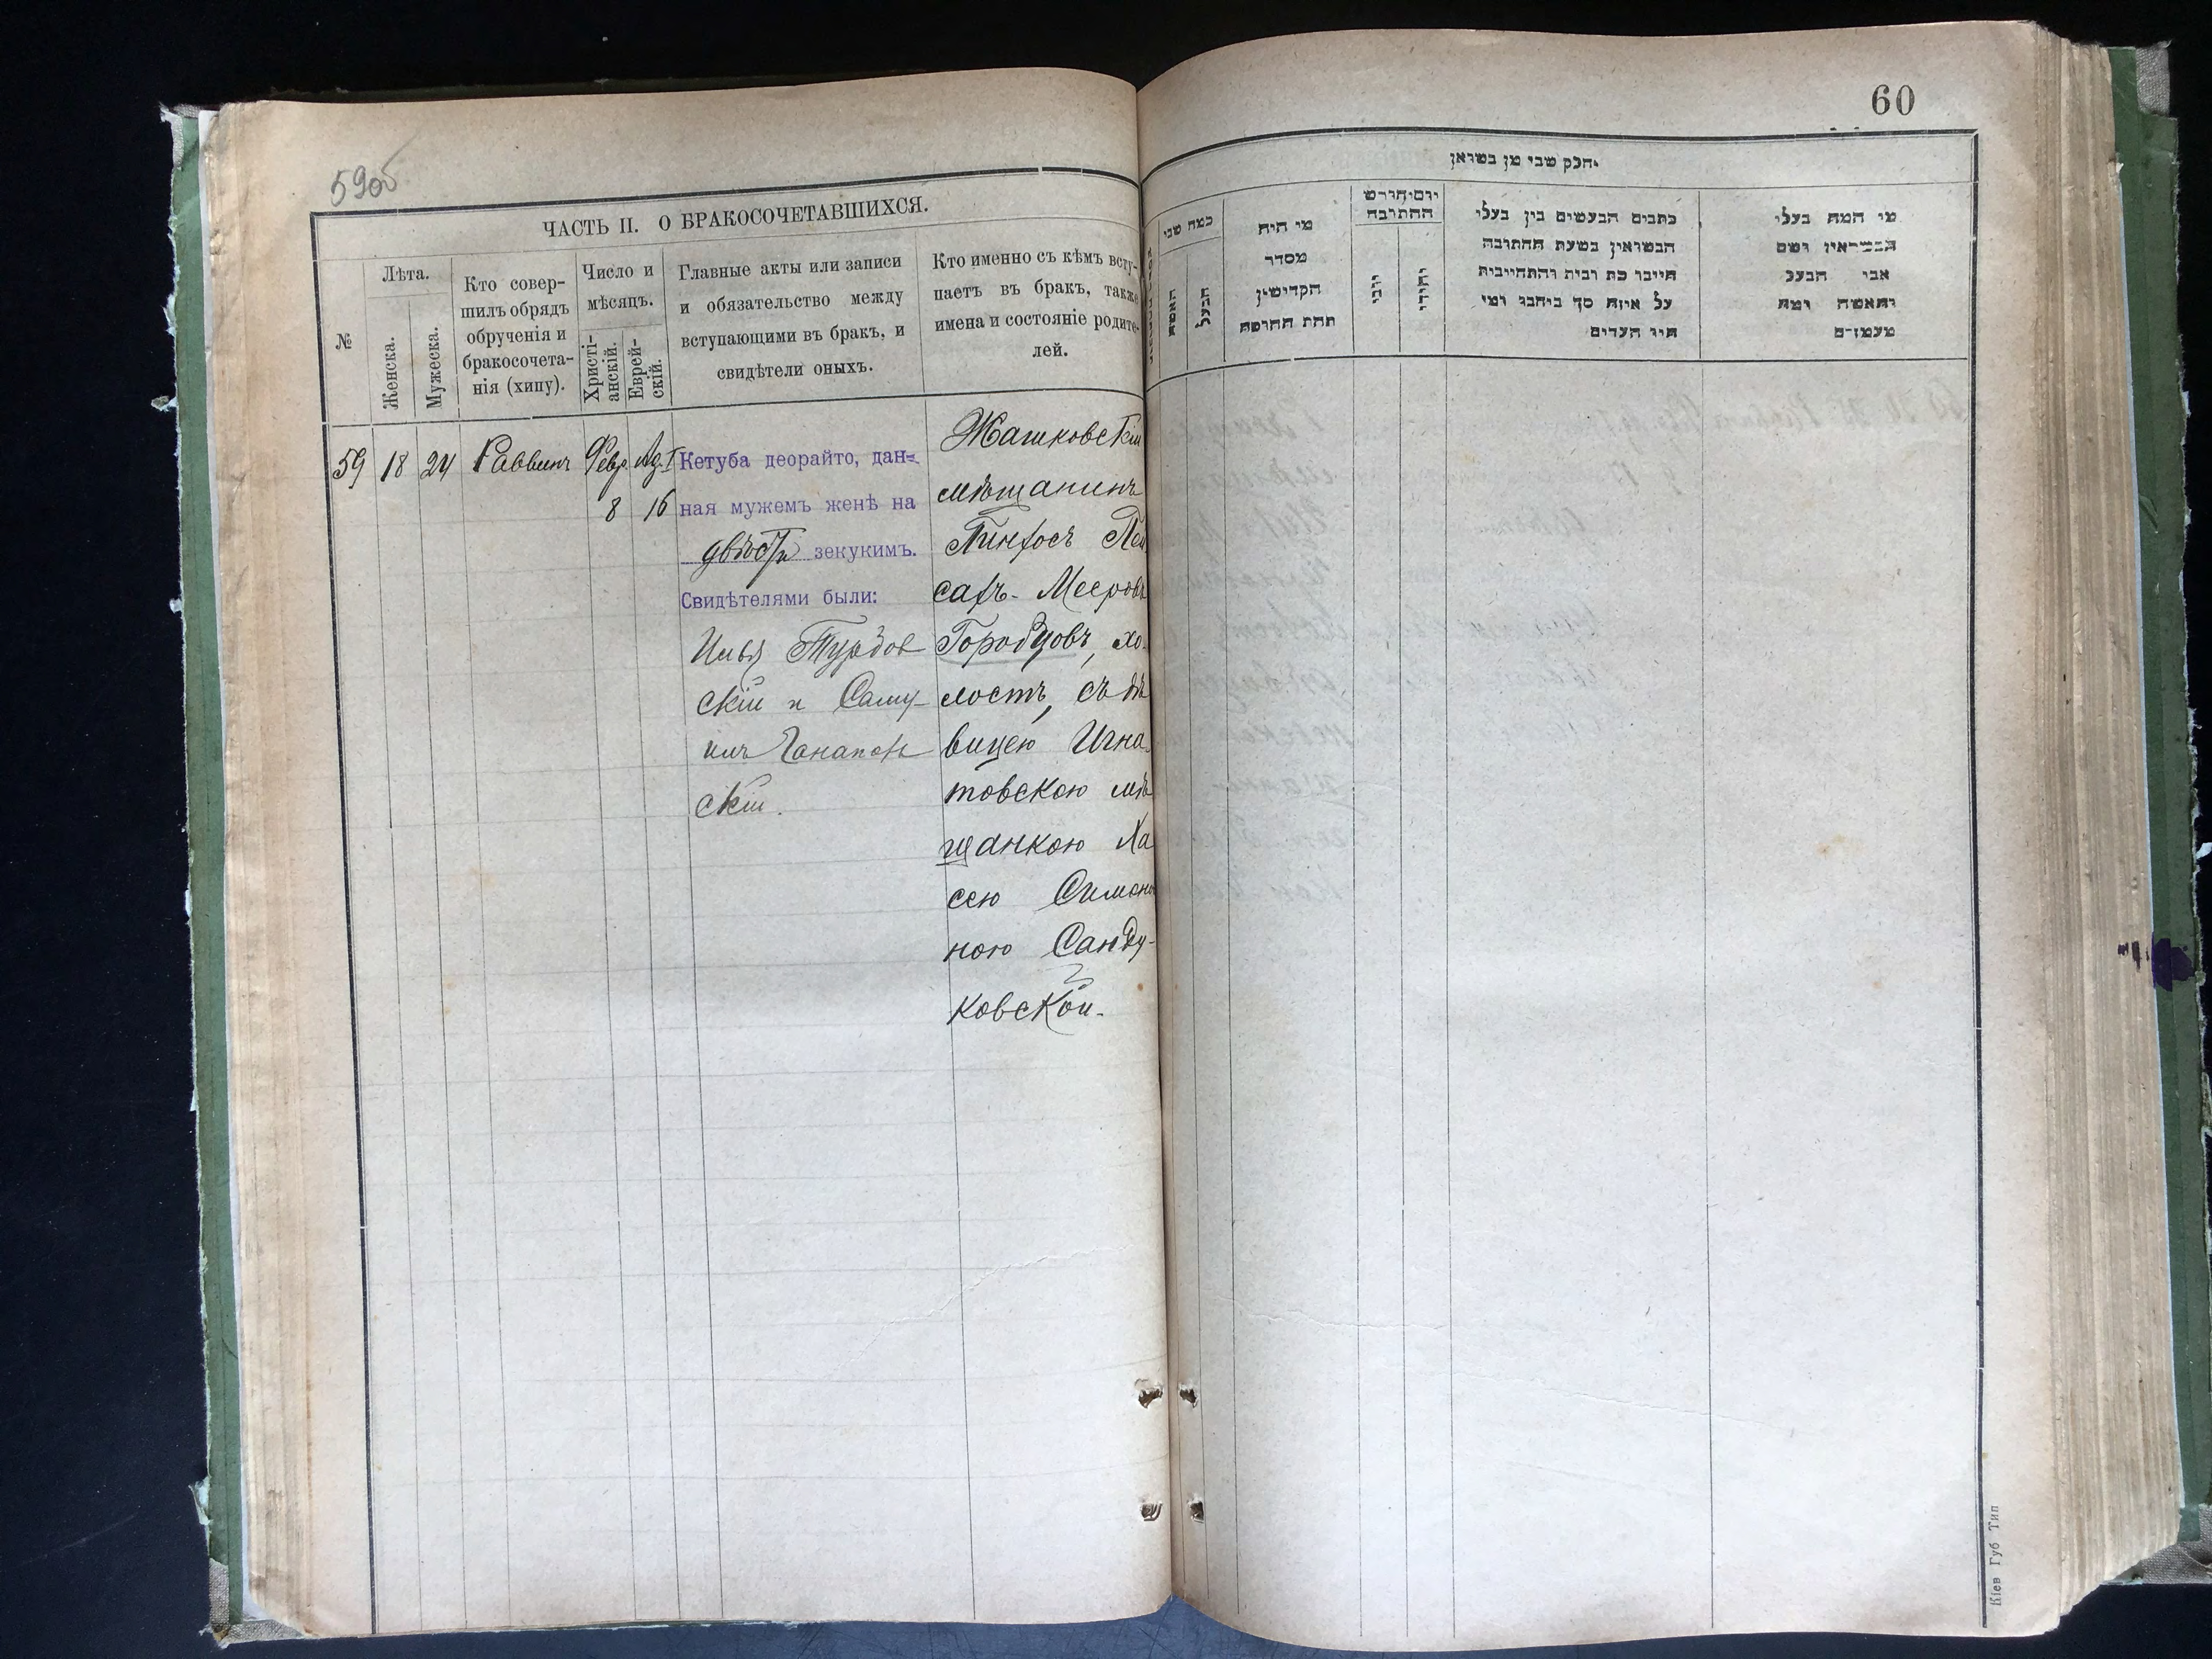 59об
ЧАСТЬ II. О БРАКОСОЧЕТАВШИХСЯ.
№
Лѣта.
Женска.
Мужеска.
Кто совер-
шилъ обрядъ
обрученія и
бракосочета-
нія (хипу).
Число и
мѣсяцъ.
Христі-
анскій.
Еврей-
скій.
Главные акты или записи
и обязательство между
вступающими въ бракъ, и
свидѣтели оныхъ.
Кто именно съ кѣмъ всту-
паетъ въ бракъ, также
имена и состояніе родите-
лей.
59 18 24 Раввинъ Февр Ад. I
8 16
Кетуба деорайто, дан=
ная мужемъ женѣ на
двѣсти зекукимъ.
Свидѣтелями были:
Илья
скій и Саму-
илъ
скій.
Жашковскій
мѣщанинъ
Пинхосъ Пей
сахъ-Мееровъ
Городцовъ, хо-
лостъ, съ дѣ
вицею Игна-
товскою мѣ
щанкою Ха
сею Симоно
ною Санду-
ковской.
60
חלק שני מן נשואין
מי המה בעלי
הנשואין ושם
אבי הבעל
והאשה ומה
מעמדם
כתבים הנעשים בין בעלי
הנשואין בשעת החתונה
חייבו כת ובית והתחייבית
על איזה סך ביחבג ומי
היו העדים
יום וחורש
החתונה
יהודי
יוני
מי היה
מסדר
הקדושין
תחת החופה
כמה שני
הבעל
האשה
Кіев Губ Тип